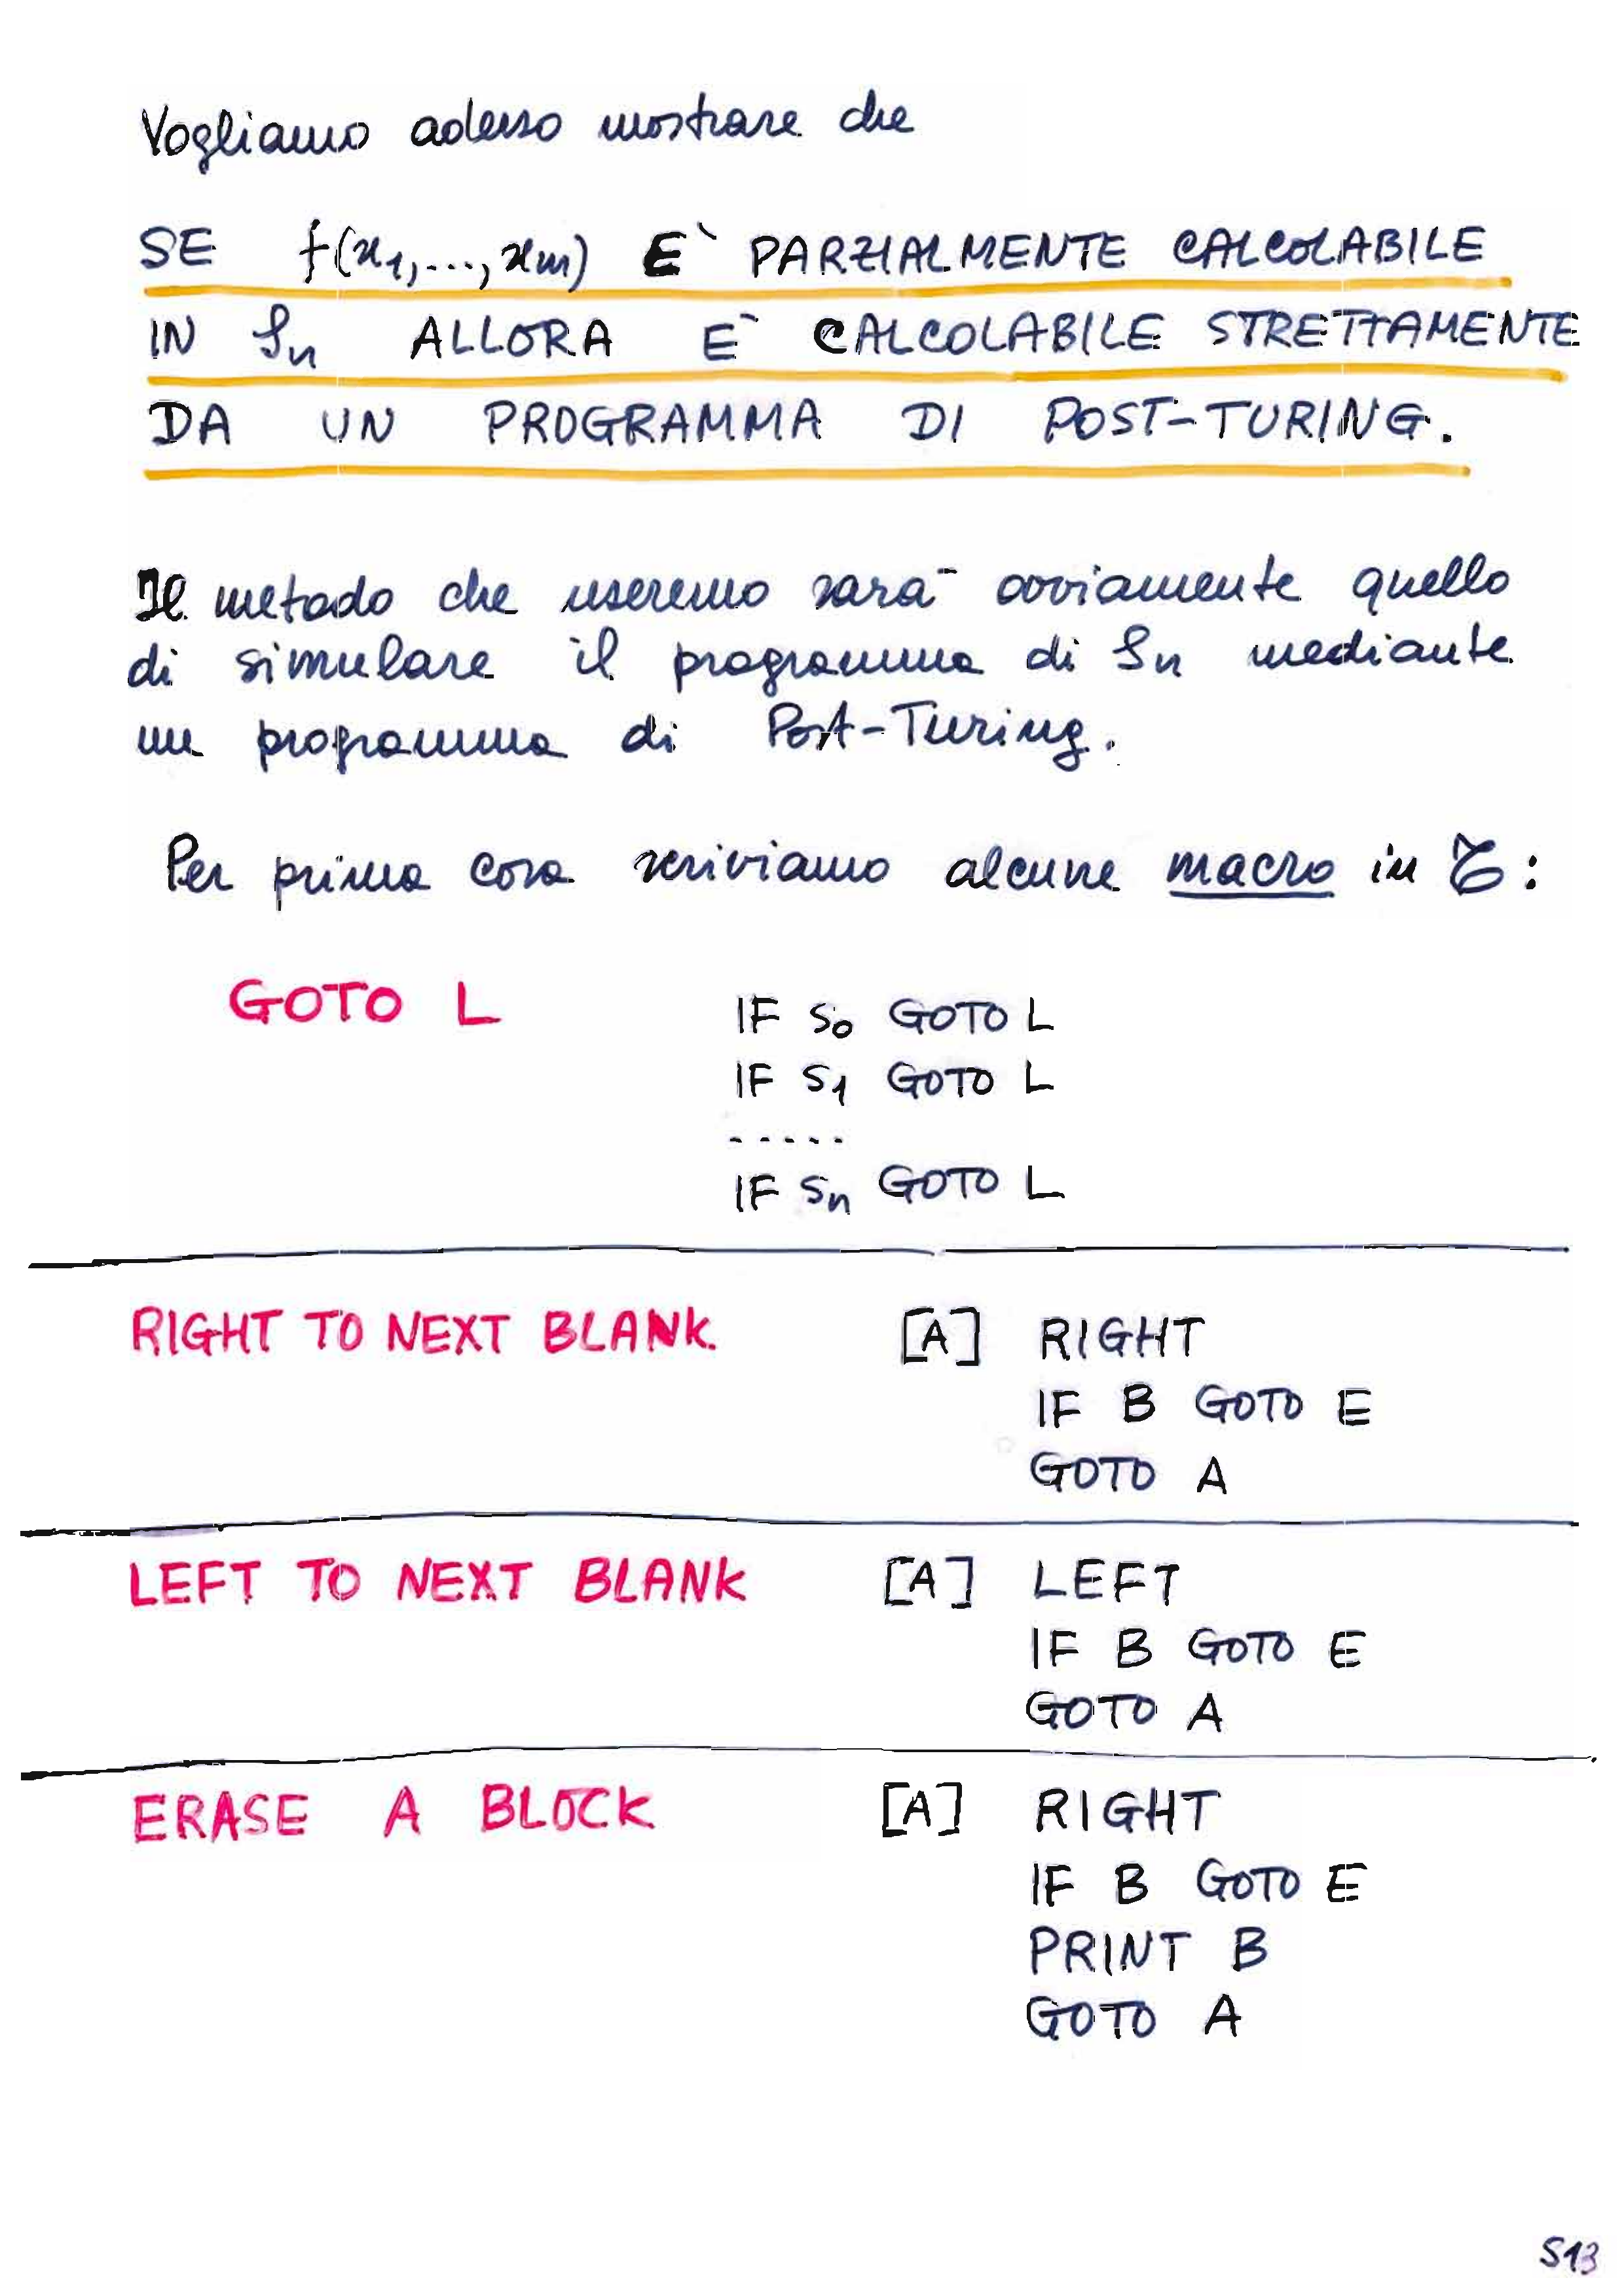 Vogliamo adesso mostrare che
SE f(x1,...,xm) E` PARZIALMENTE CALCOLABILE
IN 𝒮n ALLORA E` CALCOLABILE STRETTAMENTE
DA UN PROGRAMMA DI POST-TURING.
Il metodo che useremo sarà ovviamente quello
di simulare il programma di 𝒮n mediante
un programma di Post-Turing.
Per prima cosa scriviamo alcune macro in 𝒯:
GOTO L IF s0 GOTO L
IF s1 GOTO L
.....
IF sn GOTO L
RIGHT TO NEXT BLANK [A] RIGHT
IF B GOTO E
GOTO A
LEFT TO NEXT BLANK [A] LEFT
IF B GOTO E
GOTO A
ERASE A BLOCK [A] RIGHT
IF B GOTO E
PRINT B
GOTO A
S13